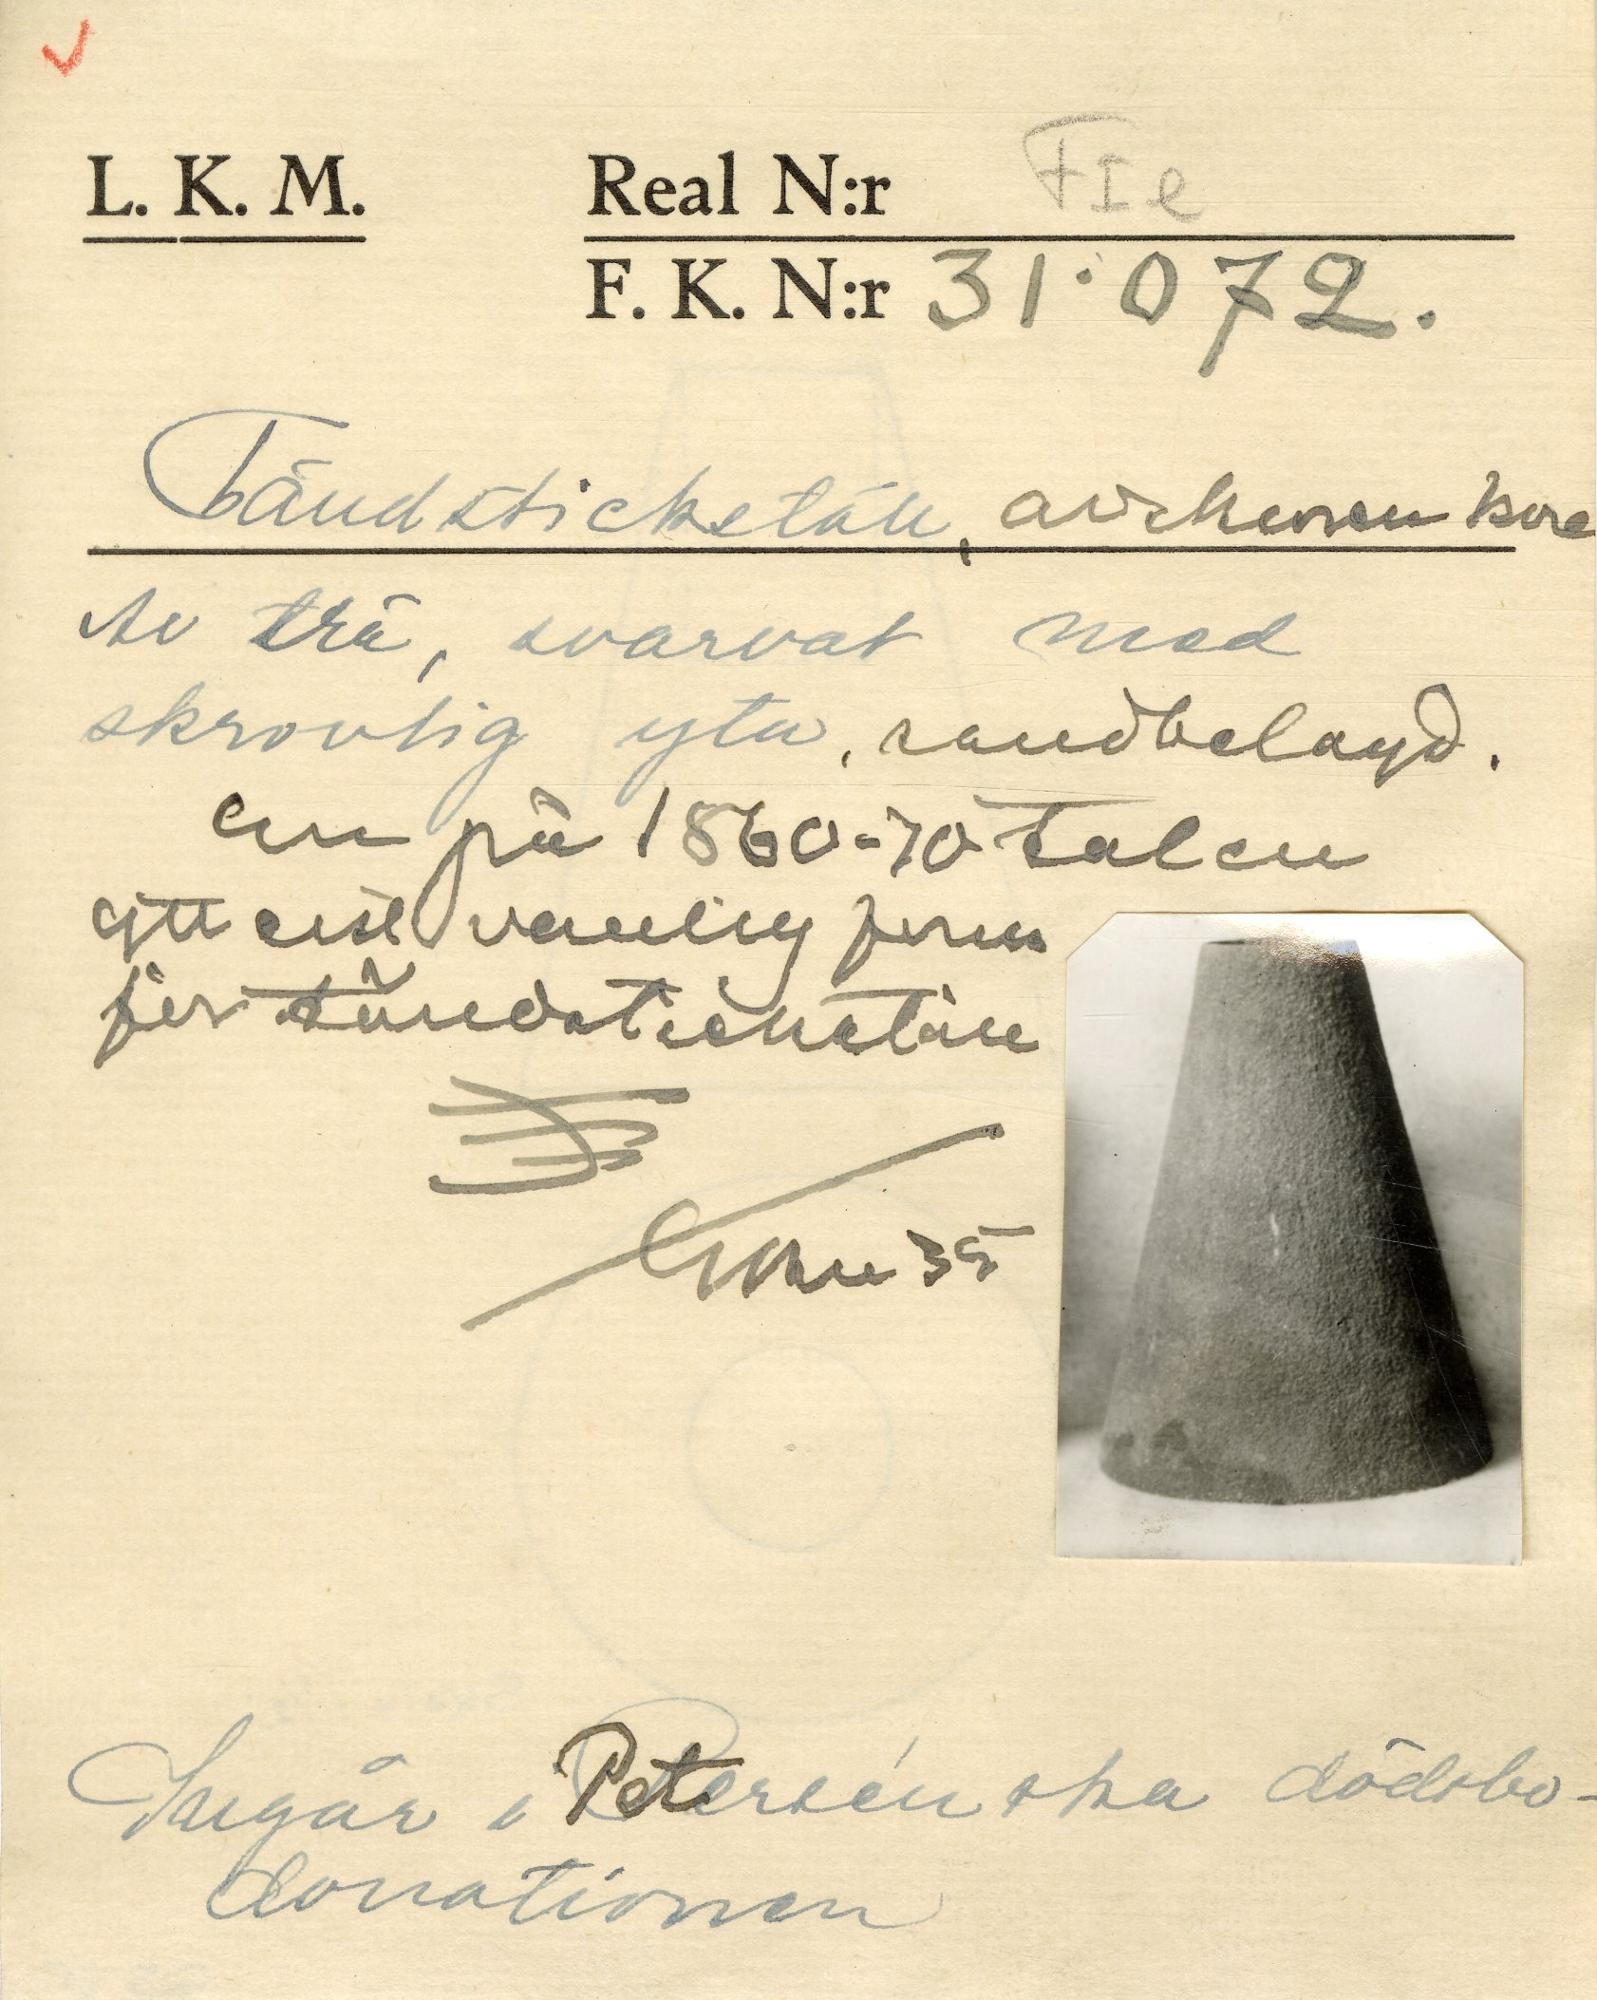 L. K. M.
Real N:r FIe
F. K. N:r 31·072.
Tändsticketåll, avskuren kore
Av trä, svarvat med
skrovlig yta, sandbelagd.
en på 1860-70 talen
ytt vanlig form
för tändsticketåll
35
Ingår i Petersénska dödsbo-
donationen